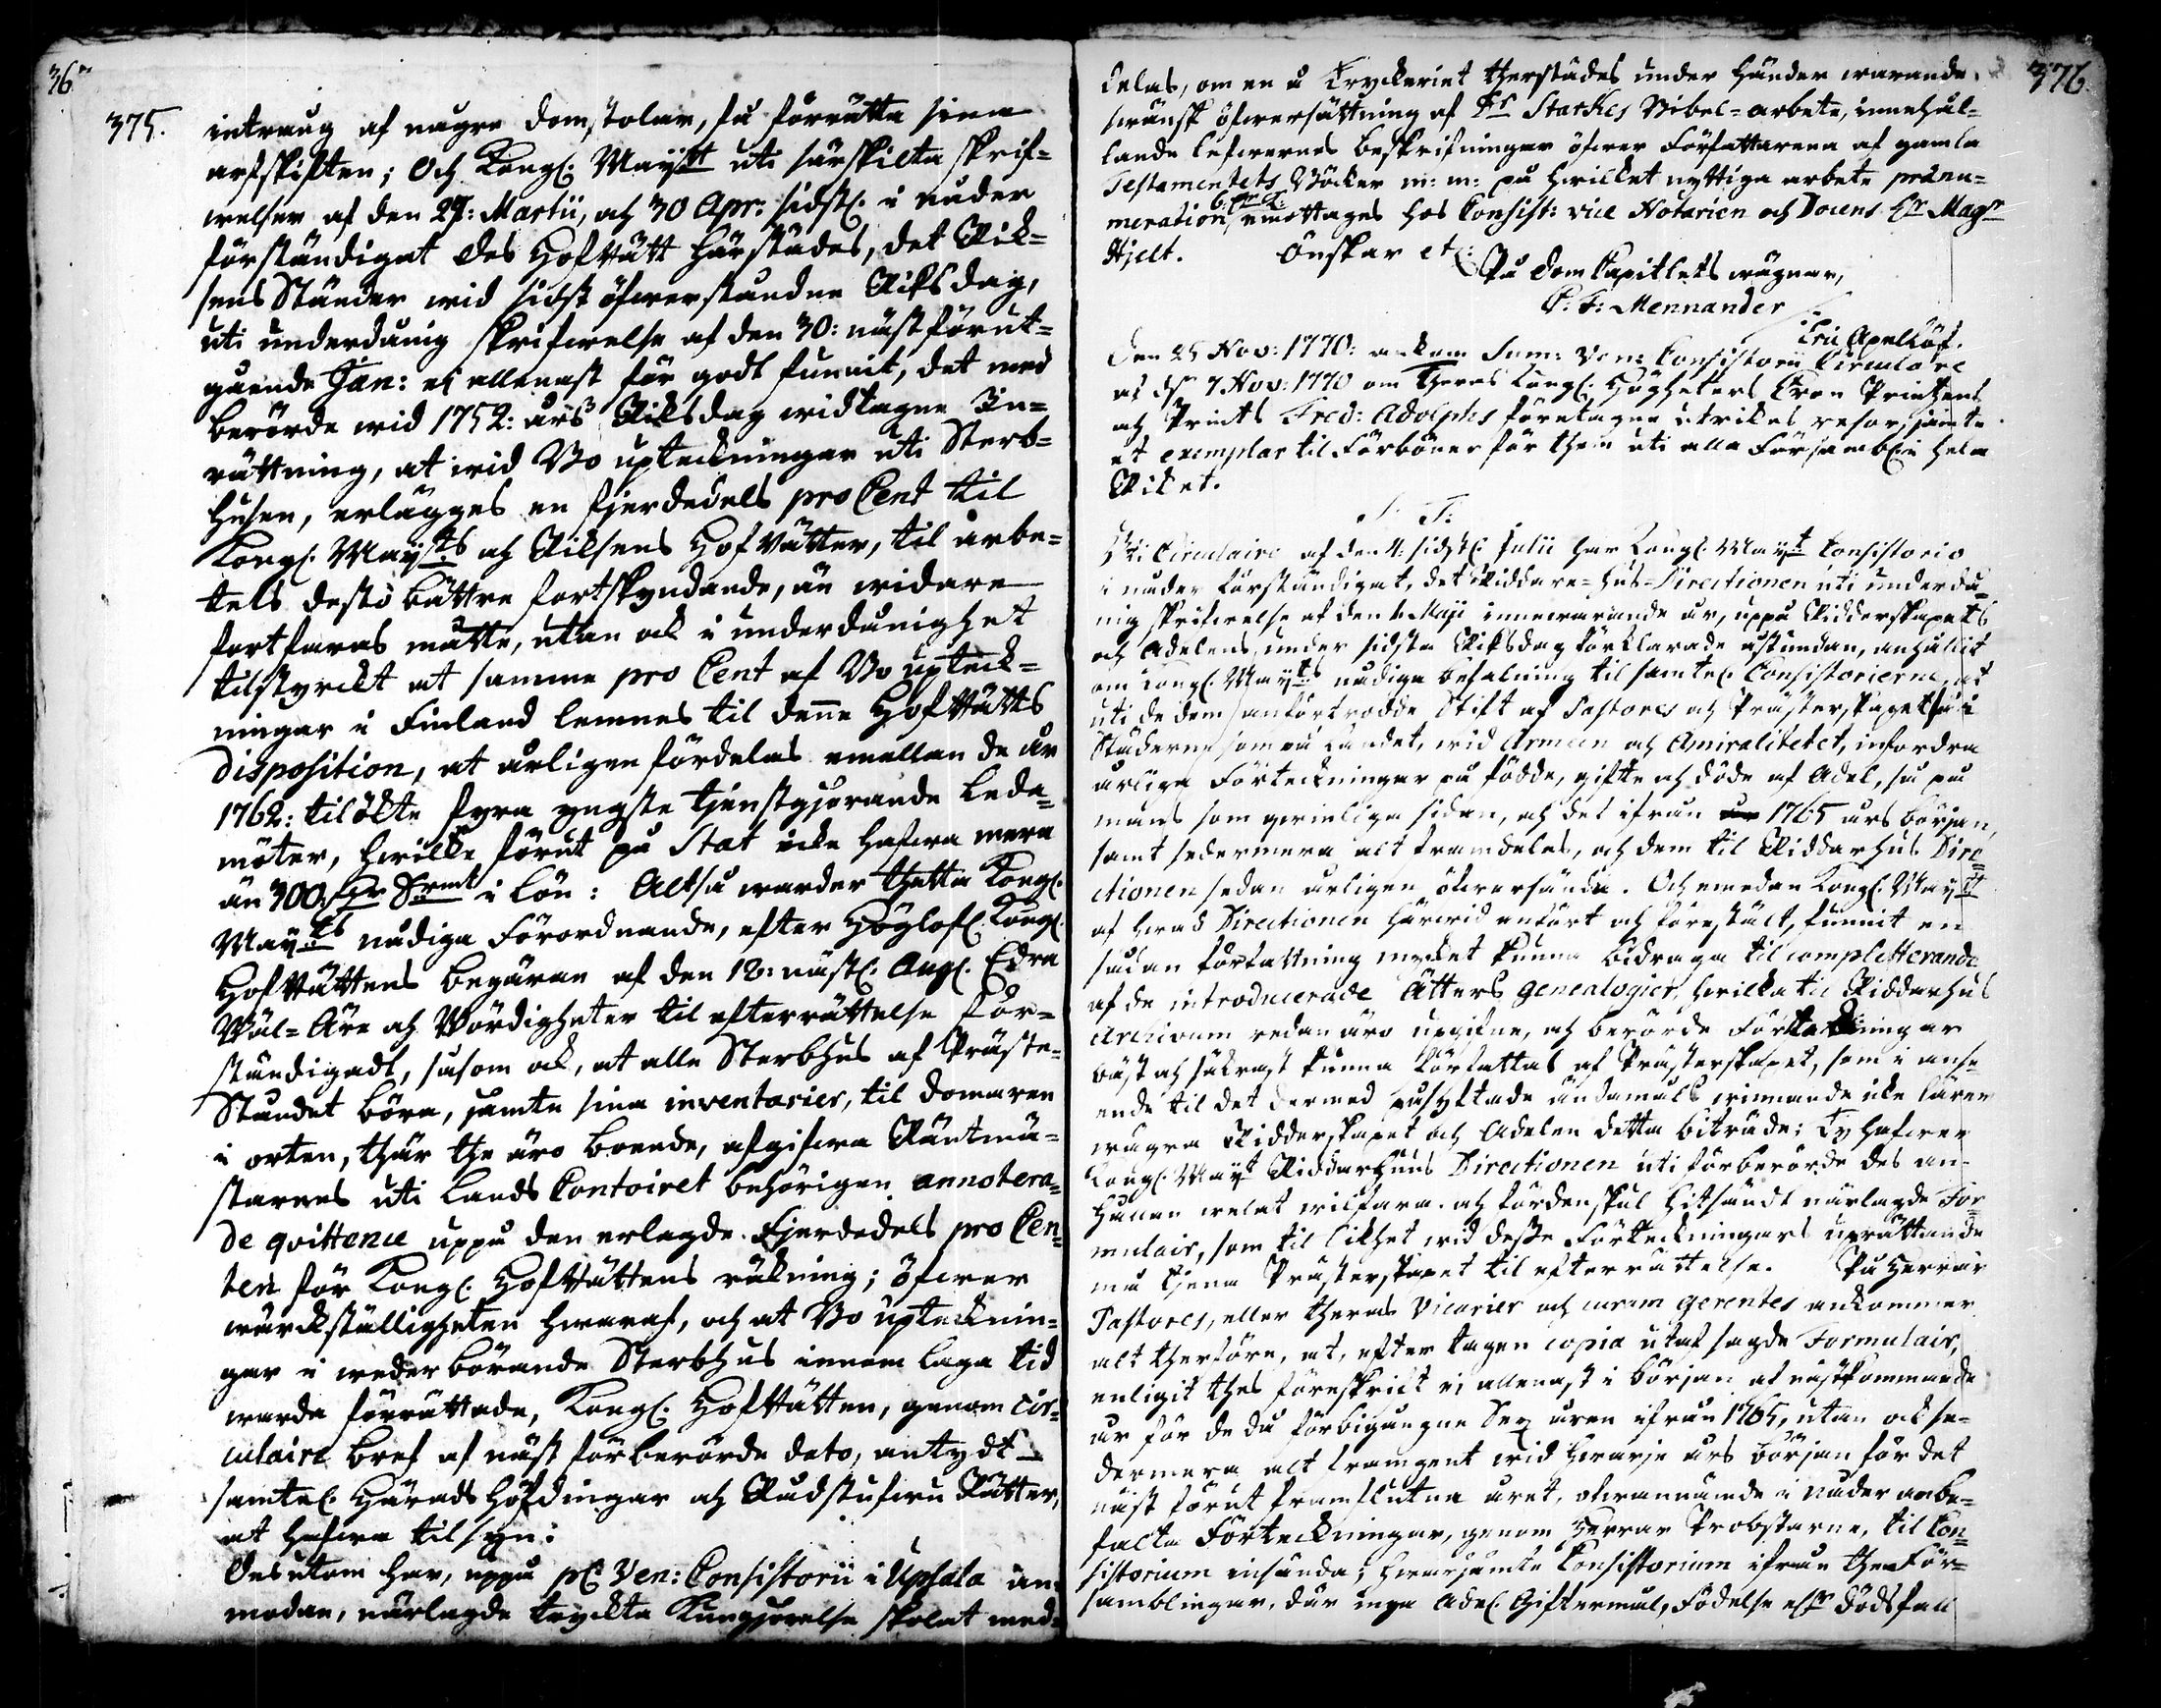 36
375.
intrång af någre domstolar, få förrätta sina
arfskiften; Och Kongl. Maÿtt uti särskilta skrif-
welser af den 27: Martii, och 30 Apr: sidstl. i nåder
förständigat des HofRätt härstädes, det Rik-
sens Ständer wid sidst öfwerståndne Riksdag,
uti underdånig skrifwelse af den 30: näst förut-
gående Jan: ei allenast för godt funnit, det med
berörde wid 1752: års Riksdag widtagne In-
rättning, at wid Bo upteckningar uti Sterb-
husen, erlägges en fjerdedels pro Cent til
Kongl. Maÿts och Riksens HofRätter, til arbe-
tets desto bättre fortskyndande, än widare
fortfaras måtte, utan ock i underdånighet
tilstyrckt at samma pro Cent af Bo upteck-
ningar i Finland lemnes til denne HofRätts
disposition, at årligen fördelas emellan de år
1762: tilökte fyra yngste tjenstgjörande Leda-
möter, hwilka förut på Stat icke hafwa mera
än 300 dlr Srmt i lön: Altså warder thetta Kongl.
Maÿts nådiga Förordnande, efter Höglofl. Kongl.
HofRättens begäran af den 12: nästl. Augl. Edra
Wäl-Äre och Wördigheter til efterrättelse för-
ständigadt, såsom ock, at alla Sterbhus af Präste-
Ståndet böra, jämte sina inventarier, til domaren
i orten, thär the äro boende, afgifwa Räntmä-
starens uti Lands Contoiret behörigen annotera-
de qvittence uppå den erlagde Fjerdedels pro Cen-
ten för Kongl. HofRättens räkning; öfwer
wärckställigheten hwaraf, och at Bo uptecknin-
gar i wederbörande Sterbhus innom laga tid
warda förrättade, Kongl. HofRätten, genom cir-
culaire bref af näst förberörde dato, antydt
samtel. Häradshöfdingar och Rådstufwu Rätter,
at hafwa tilsyn:
Desutom har, uppå pl. Ven: Consistorii i Upsala an-
modan, närlagde tryckta Kungjörelse skolat med-
376.
delas, om en å Tryckeriet therstädes under händer warande
swänsk öfwersättning af Dr Starkes Bibel-arbete, innehål-
lande lefwernes beskrifningar öfwer Författarena af gamla
Testamentets Böcker m: m: på hwilket nyttiga arbete pränu-
meration emottages hos Consist: vice Notarien och Docens Hr Magr
Hjelt. Önskar etc:
På Dom Capitlets wägnar,
C. F: Mennander
Eric Apelköf.
Den 25 Nov: 1770: ankom Sum: Ven: Consistorii Circulaire
af dn 7 Nov: 1770 om theras Kongl. Högheters Cron Printzens
och Prints Fred: Adolphs företagne utrikes resor, jämte
et exemplar til Förböner för them uti alla Försambl. i hela
Riket.
S. T:
Uti Circulaire af den 4: sidstl. Julii har Kongl. Maÿt Consistorio
i nåder förständigat, det Riddare-hus-Directionen uti underdå-
nig skrifwelse af den 1. Maji innewarande år, uppå Ridderskapets
och Adelens under sidsta Riksdag förklarade åstundan, anhållit
om Kongl. Maÿts nådiga befalning til samtel. Consistorierne, at
uti de dem anförtrodde Stift af Pastores och Prästerskapet så i
Städerne som på Landet, wid Armeen och Amiralitetet, infordra
årliga Förteckningar på födde, gifte och döde af Adel, så på
mans som qwinliga sidan, och det ifrån 1765 års början,
samt sedermera alt framdeles, och dem til Riddarhus Dire-
ctionen sedan årligen öfwersända. Och emedan Kongl. Maÿtt
af hwad Directionen härwid anfört och förestält, funnit en
sådan författning mycket kunna bidraga til completterande
af de introducerade Ätters genealogier, hwilka til Riddarhus
archivum redan äro upgifne, och berörde Förteckningar
bäst och säkrast kunna författas af Prästerskapet, som i anse-
ende til det dermed påsyftade ändamåls winnande icke lärer
wägra Ridderskapet och Adelen detta biträde; Ty hafwer
Kongl. Maÿt Riddarhuus Directionen uti förberörde des an-
hållan welat willfara och fördenskul hitsändt närlagde For-
mulair, som til likhet wid desse Förteckningars uprättande
må tjena Prästerskapet til efterrättelse. På Herrar
Pastores, eller theras Vicarier och curam gerentes ankommer
alt therföre, at, efter tagen copia utaf sagde Formulair,
enligit thes föreskrift ei allenast i början af nästkommande
år för de då förbigångne Sex åren ifrån 1765, utan ock se-
dermera alt framgent wid hwarje års början för det
näst förut framflutna året, ofwannämde i nåder anbe-
falte Förteckningar, genom Herrar Probstarne, til Con-
sistorium insända; hwarjämte Consistorium ifrån the För-
samblingar, där inga Adel. Giftermål, Födelse ellr dödsfall